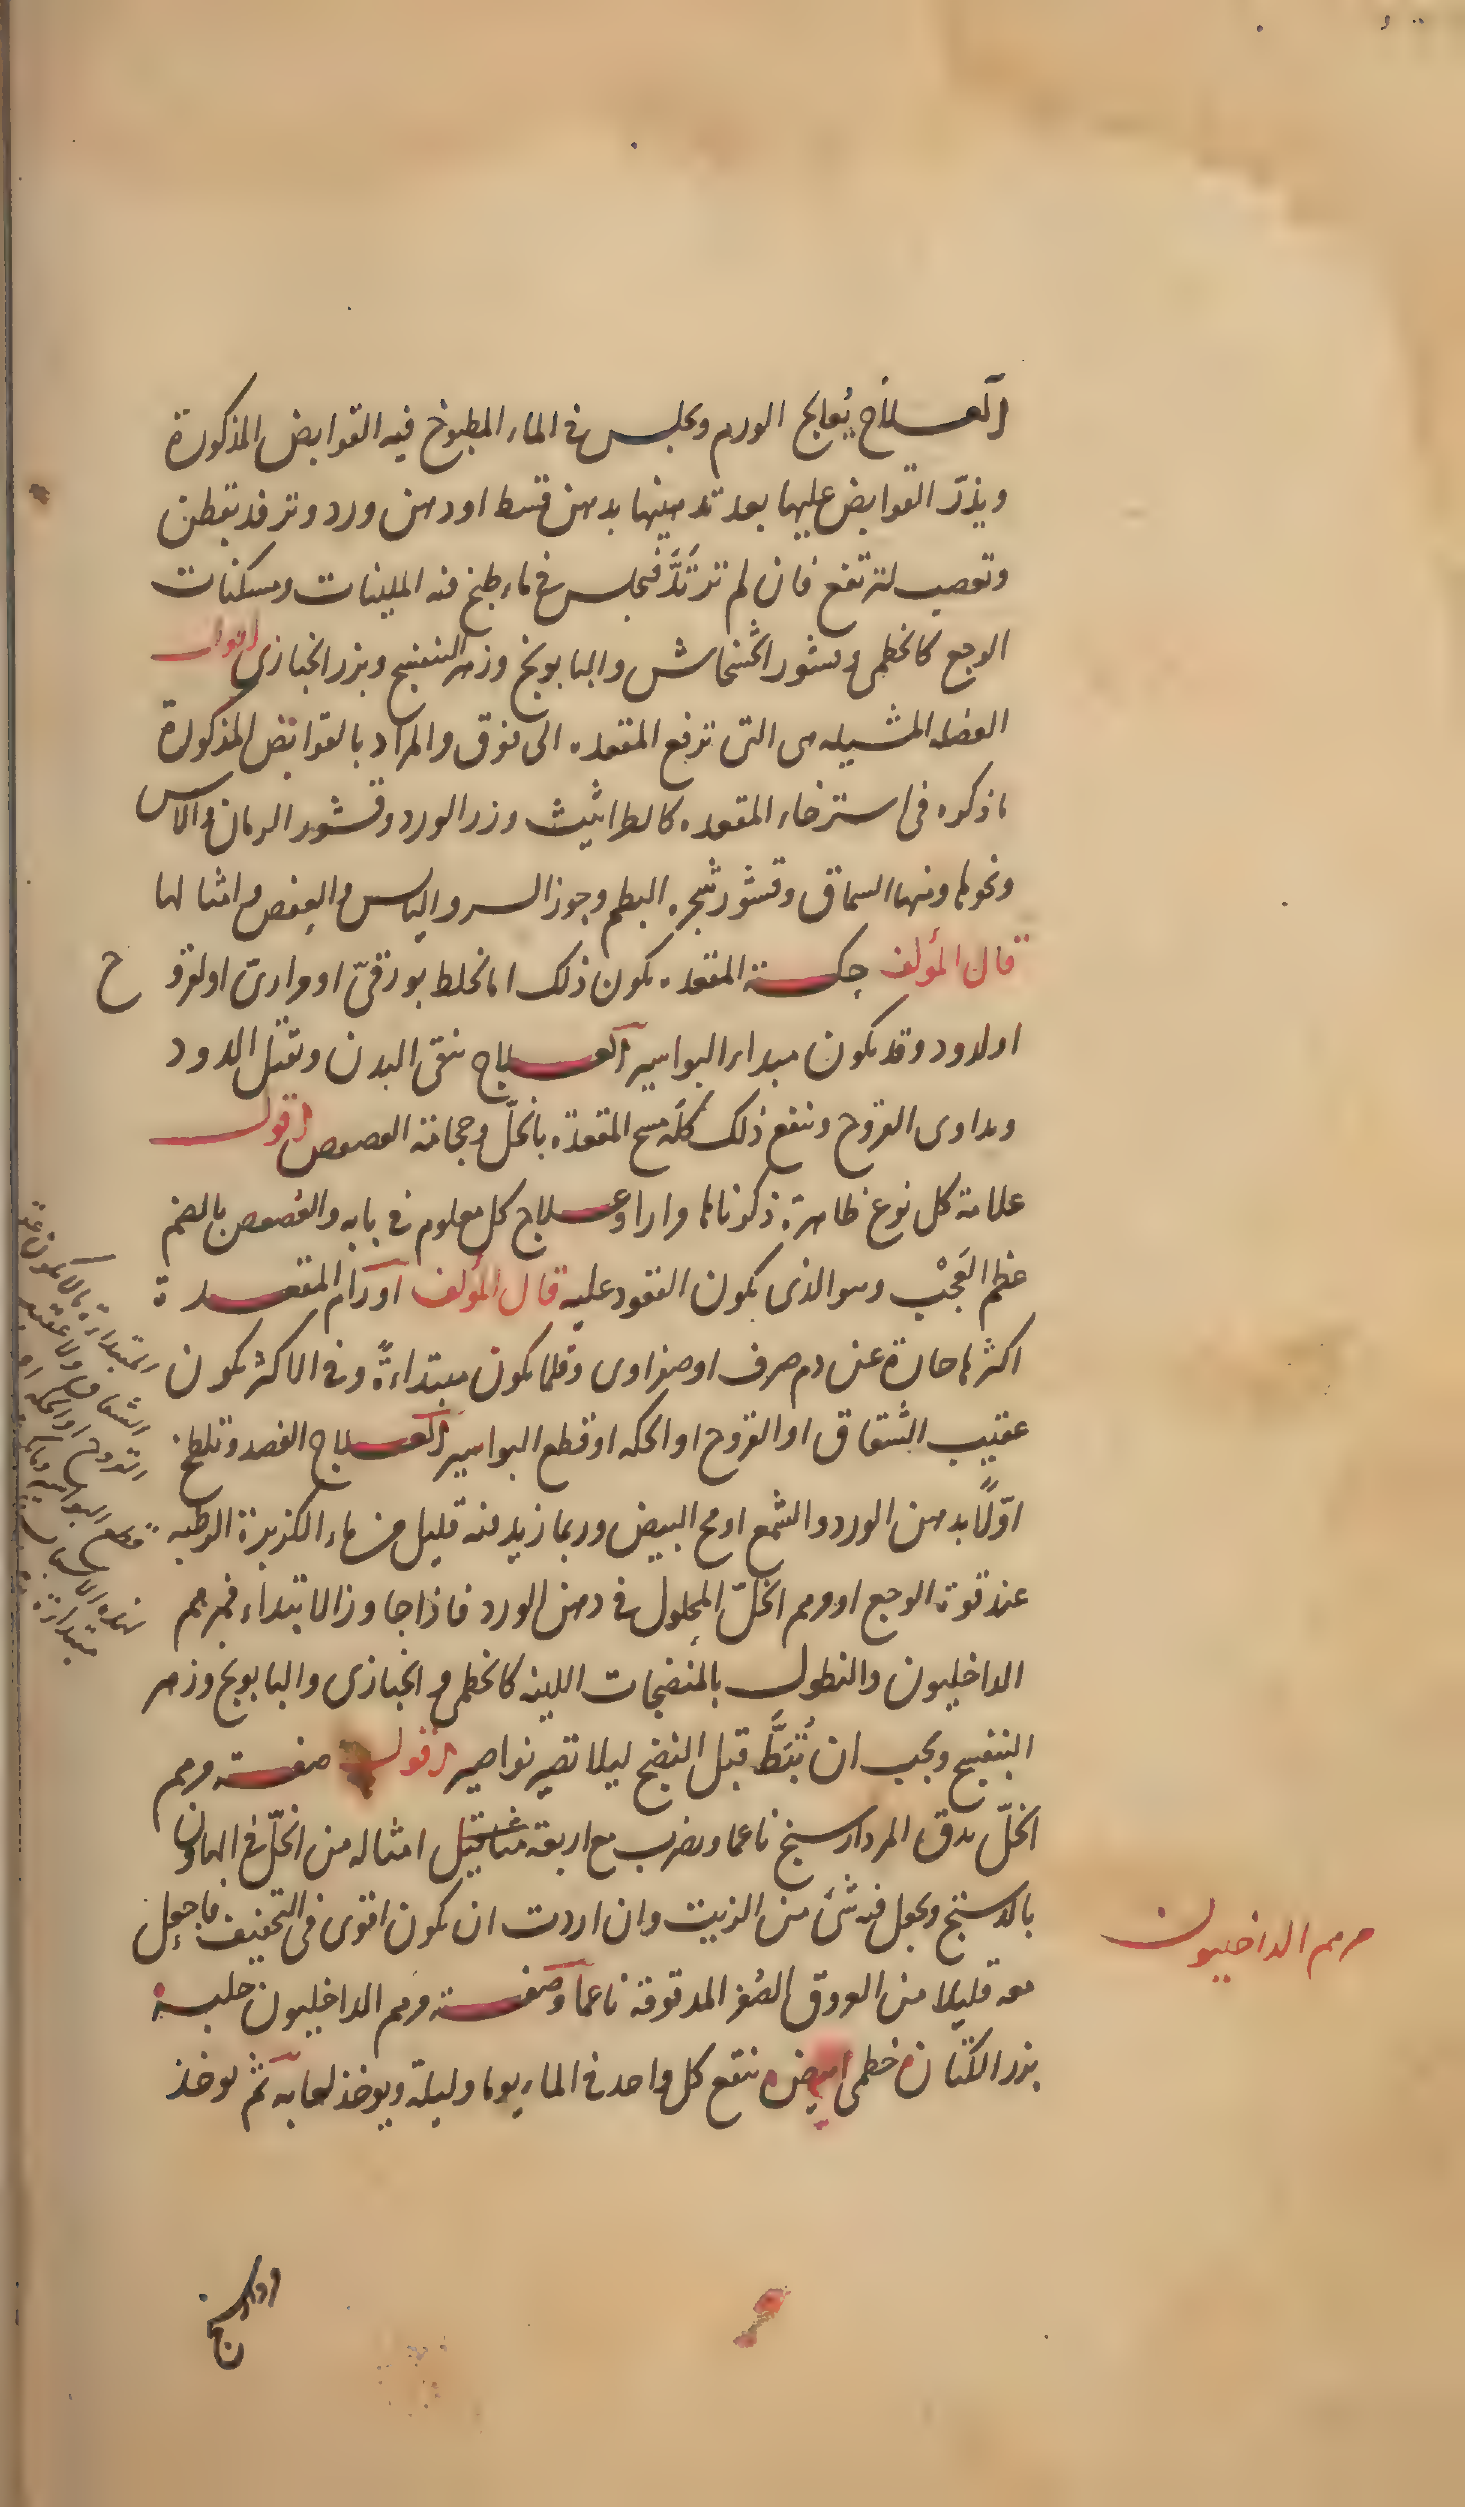 العلاج يُعالج الورم ويجلس في الماء المطبوخ فيه القوابض المذكورة
ويذرّ القوابض عليها بعد تدهينها بدهن قسط او دهن ورد وترفد بقطن
وتعصب لترتفع فان لم ترتَدَّ فيجلس في ماء طبخ فيه الملينات ومسكنات
الوجع كالخطمى وقشور الخشخاش والبابونج وزهر البنفسج وبزر الخبازى اقول
العضله المشيله هى التى ترفع المقعده الى فوق والمراد بالقوابض المذكورة
ما ذكره فى استرخاء المقعده كالطراثيث وزر الورد وقشور الرمان والآس
ونحوها ومنها السماق وقشور شجره البطم وجوز السرو اليابس والعفص وامثالها
قال المؤلف حكة المقعده يكون ذلك اما لخلط بورقىّ او مرارىّ او لقرو ح
او لدود وقد يكون مبداء البواسير العلاج ينقى البدن ويقتل الدود
ويداوى القروح وينفع ذلك كلّه مسح المقعدة بالخلّ وحجامة العصعص اقول
علامة كل نوع ظاهرة ذكرناها مرارا وعلاج كل معلوم فى بابه والعُصعص بالضم
عظم العَجْب وهو الذى يكون القعود عليه قال المؤلف اورام المقعدة
اكثرها حارة عن دم صرف او صفراوى وقلما يكون مبتداءةً وفى الاكثر يكون
عقيب الشقاق او القروح او الحكه او قطع البواسير العلاج الفصد وتلطخ
اوّلًا بدهن الورد والشمع او مح البيض وربما زيد فيه قليل من ماء الكزبرة الرطبه
عند قوة الوجع او مرهم الخلّ المحلول فى دهن الورد فاذا جاوز الابتداء فبمرهم
الداخليون والنطول بالمنضجات اللينه كالخطمى والخبازى والبابونج وزهر
البنفسج ويجب ان تُبَطَّ قبل النضج ليلا تصير نواصير اقول صفة مرهم
الخلّ يدق المرداسنج ناعما ويضرب مع اربعة مثاقيل امثاله من الخلّ فى الهاون
بالدستج ويجعل فيه شئ من الزيت وان اردت ان يكون اقوى فى التجفيف فاجعل
معه قليلا من العروق الصُفر المدقوقة ناعما وصفة مرهم الداخليون حلبه
بزر الكتان خطمى ابيض ينقع كل واحد فى الماء يوما وليلة ويوخذ لعابه ثم يوخذ
مرهم الداخليون
المبتداءة ما لا يكون عقيب